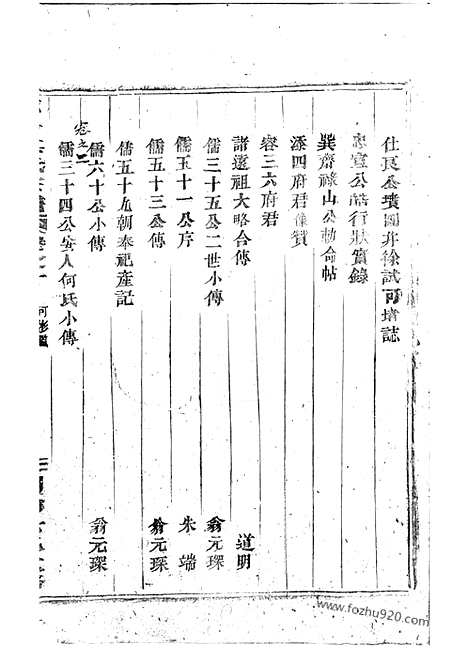 仕良公墳圖并徐試可壙誌
忠宣公皓行狀實錄
巽齋祿山公勅命帖
添四府君像贊
容三六府君
諸遠祖大略合傳 道明
儒三十五公二世小傳 翁元琛
儒五十一公序 朱端
儒五十三公傳 翁元琛
儒五十九朝奉祀產記
儒六十公小傳 翁元琛
卷之二
儒三十四公安人何氏小傳
www.fozhu920.com